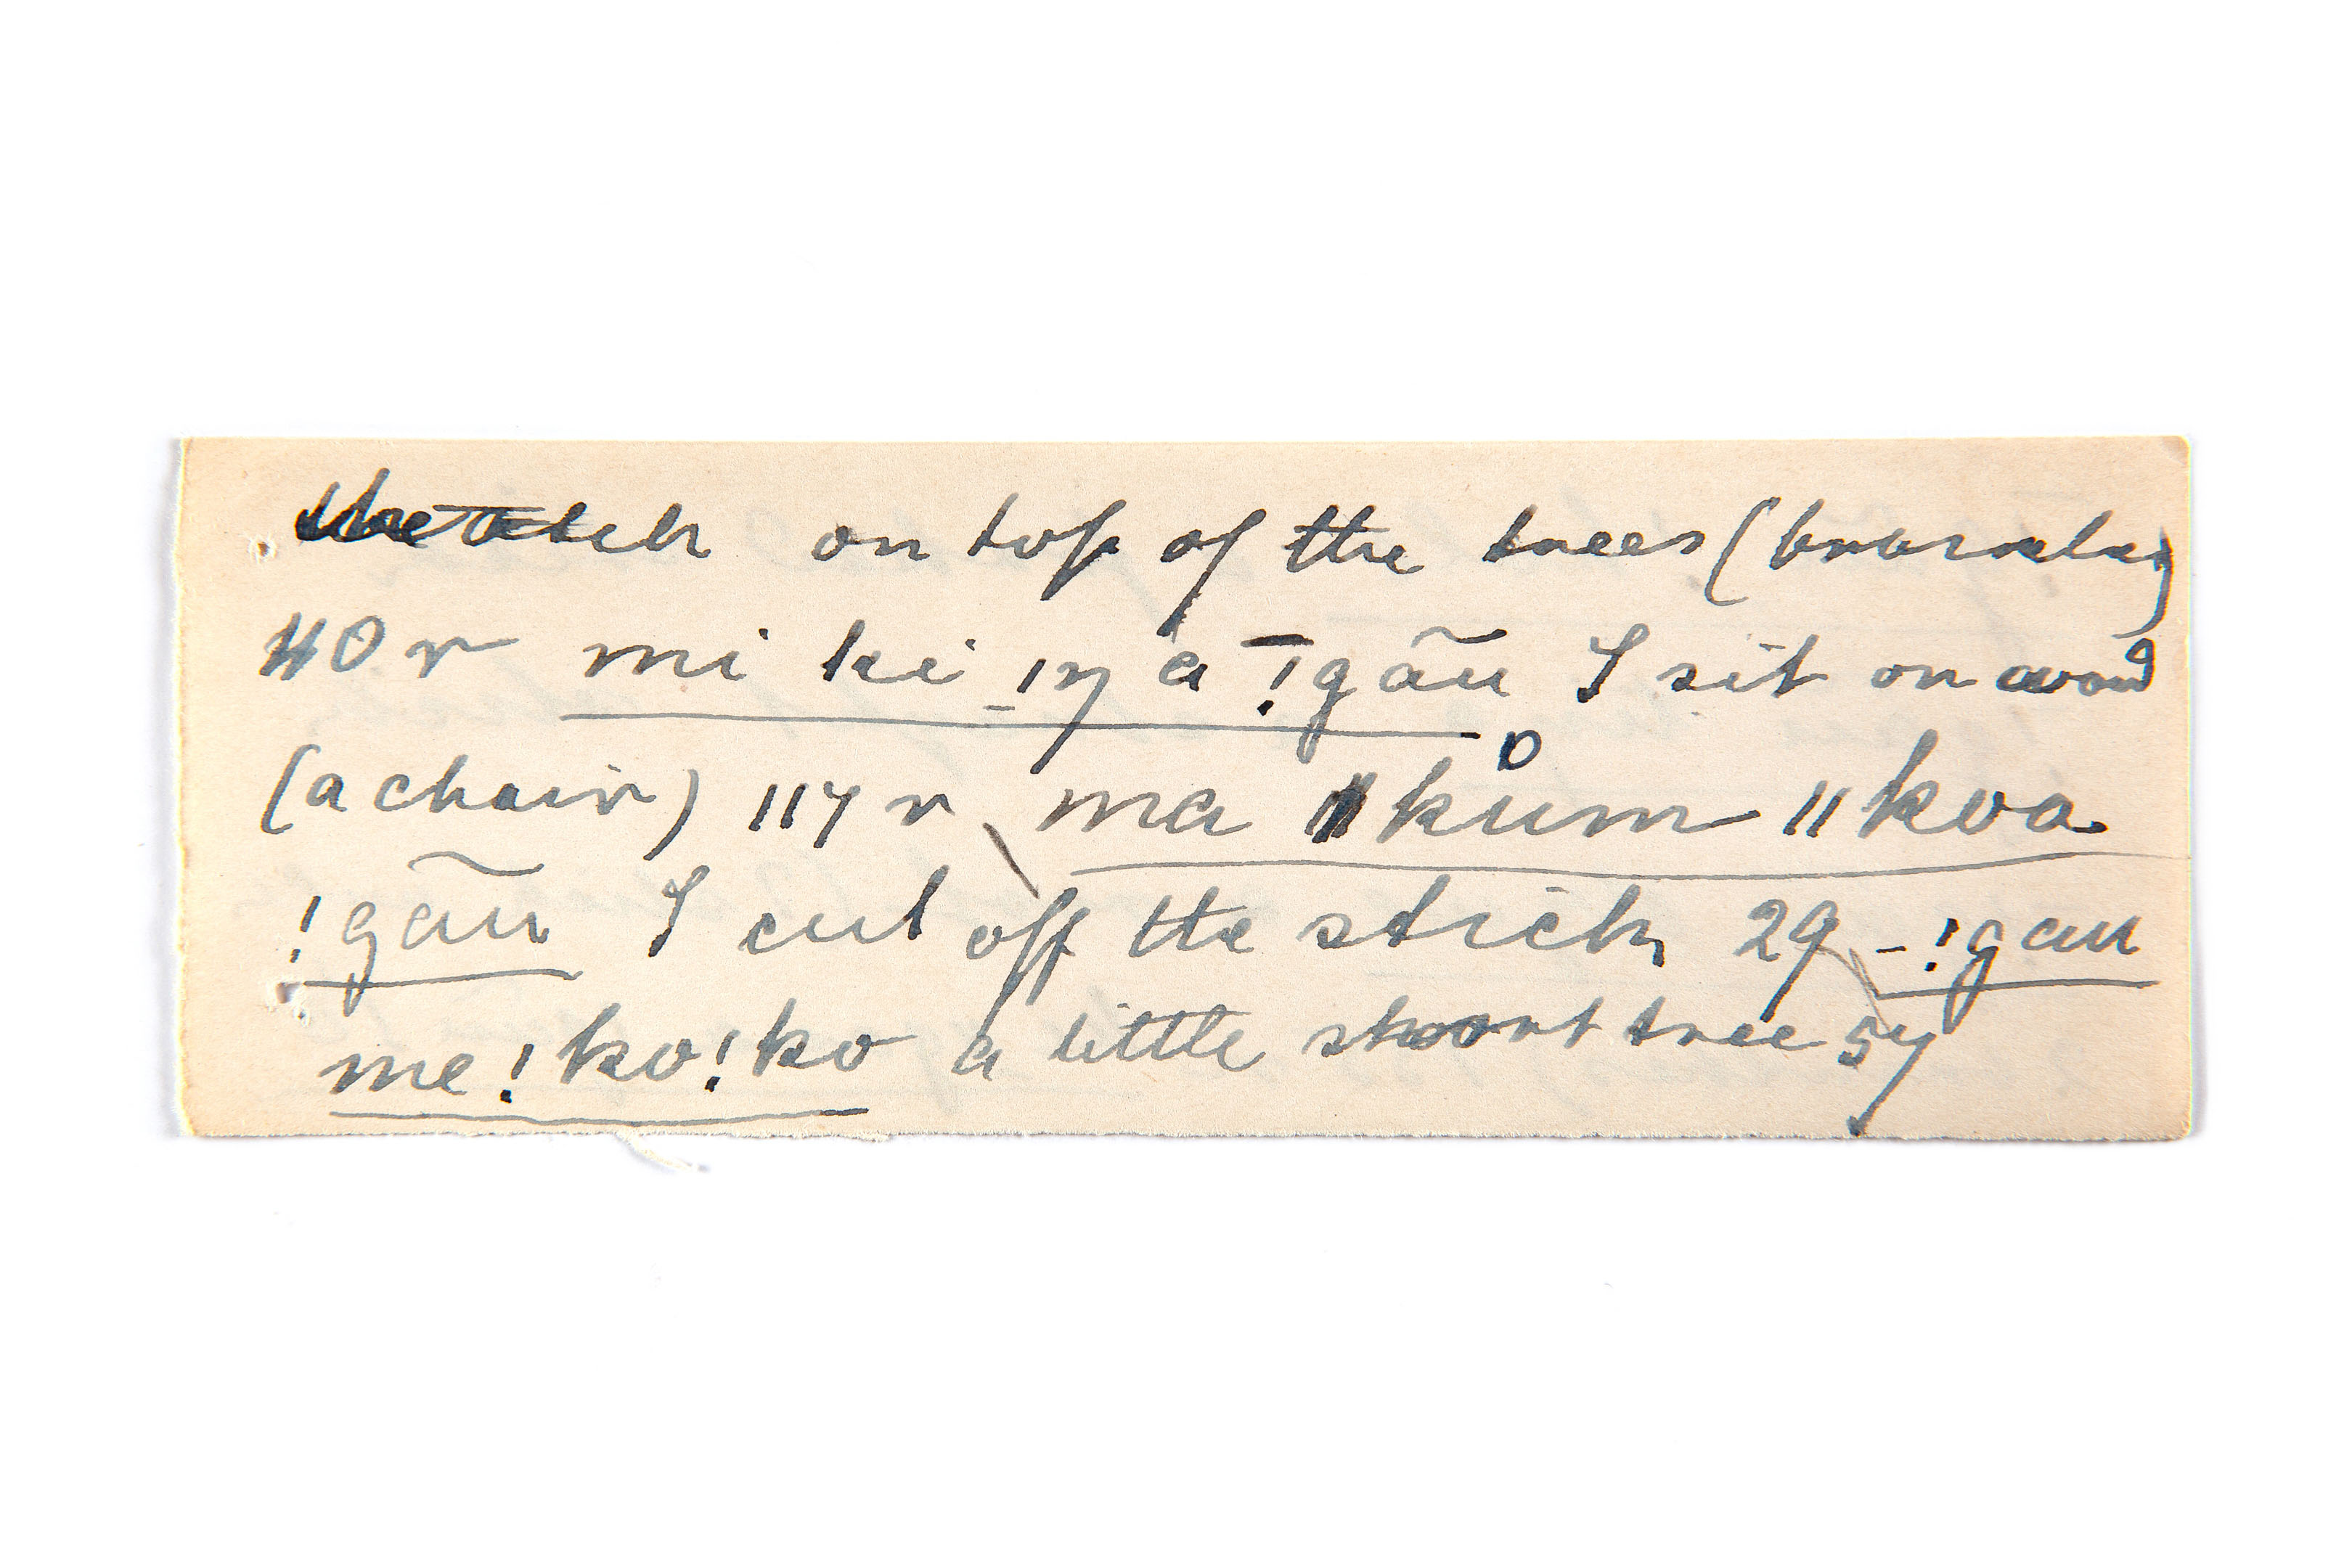 on top of the trees (
40 r mi ki ıŋ a !gãu I sit on wood
(a chair) 117 r ma ǁkům ǁkva
!gãu I cut off the stick, 29 - !gau
me !ko!ko a little short tree 57